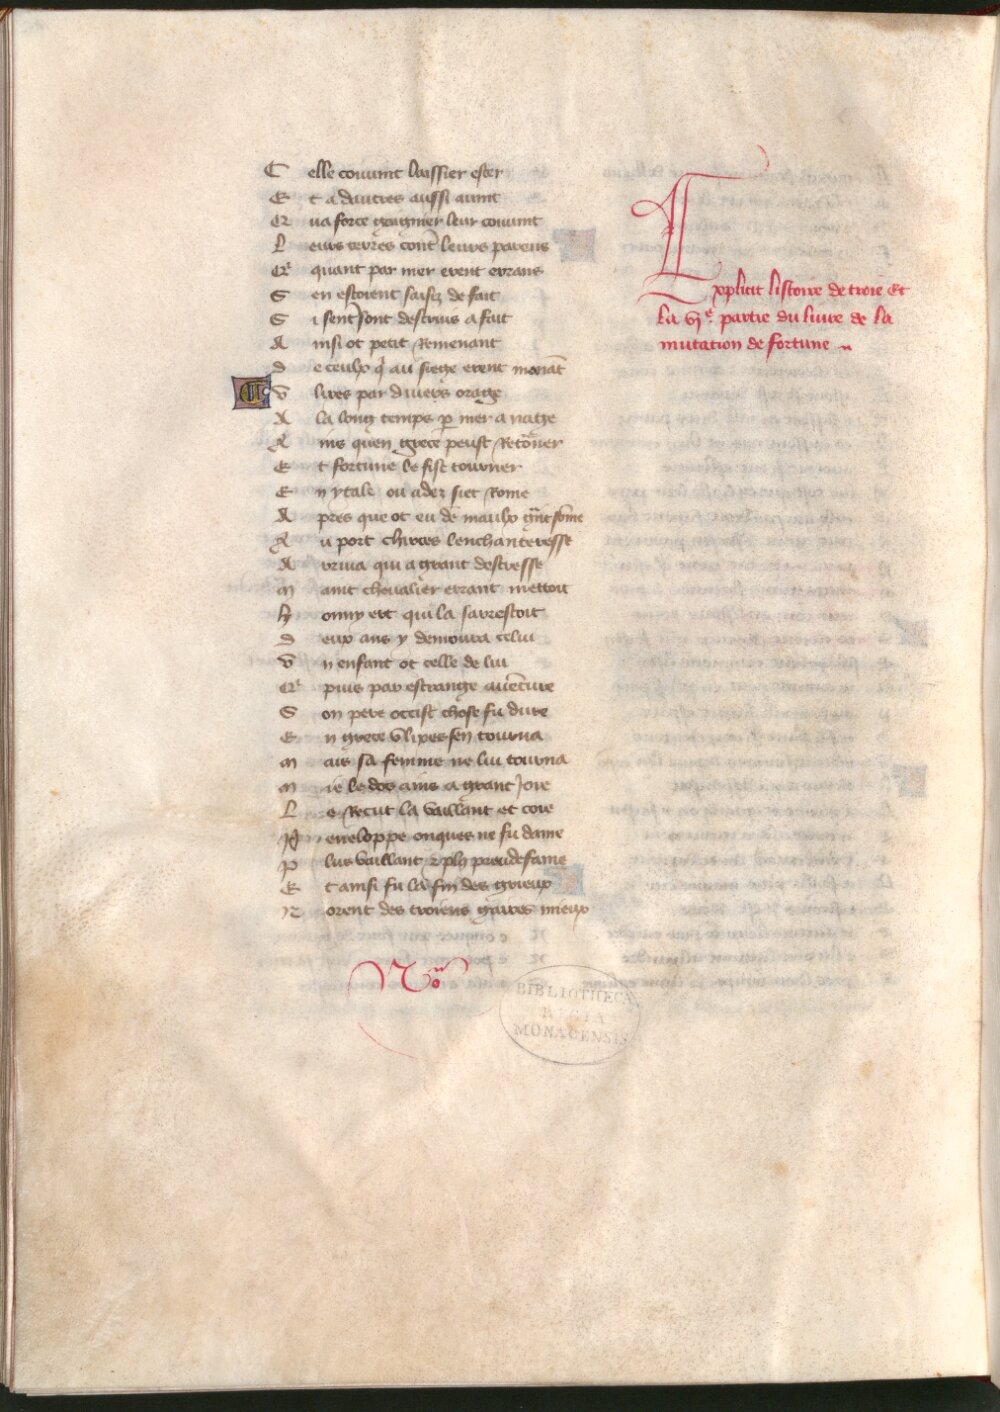 C elle couuint laissier ester
E t a dautres aussi auint
Q ua force gaignier leur couuint
L eurs terres cont leurs parens
Q quant par mer erent errans
S en estoient saisiz de fait
S i sen sont destruis a fait
A insi ot petit Remenant
D e ceulx q̃ au siege erent menãt
V lixes par diuers orage
A la long temps p mer a nage
A ins quen grece peust Retõner
E t fortune le fist tourner
E n ytale ou adez siet Rome
A pres que ot eu de maulx grãt sõme
A u port circes lenchanteresse
A rriua qui a grant destresse
M aint cheualier errant mettoit
H onny ert qui la sarrestoit
D eux ans y demoura celui
V n enfant ot celle de lui
Q puis par estrange auẽture
S on pere occist chose fu dure
E n grece vlixes sen tourna
M ais sa femme ne lui tourna
M ie le dos ains a grant Joie
L e Recut la vaillant et coie
P eneloppe onques ne fu dame
P lus vaillant & pl9 preudefame
E t ainsi fu la fin des grieux
N orent des troiens gaires mieux
Explicit listoire de troie Et
la vje. partie du liure de la
mutation de fortune
BIBLIOTHECA
REGIA
MONACENSIS